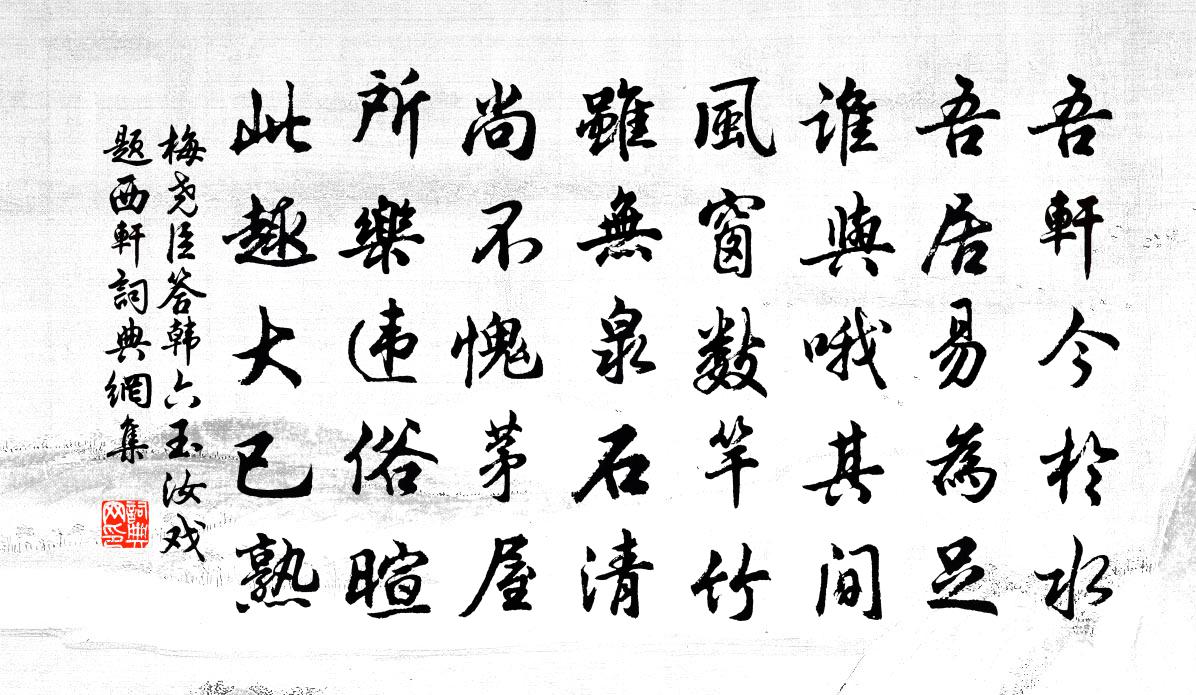 吾軒今於水
吾居易為足
誰與哦其间
風窗数竿竹
雖無泉石清
尚不愧茅屋
所樂违俗暄
此趣大已熟
梅尧臣答韩六玉汝戏
题西軒詞典網集
詞典网印